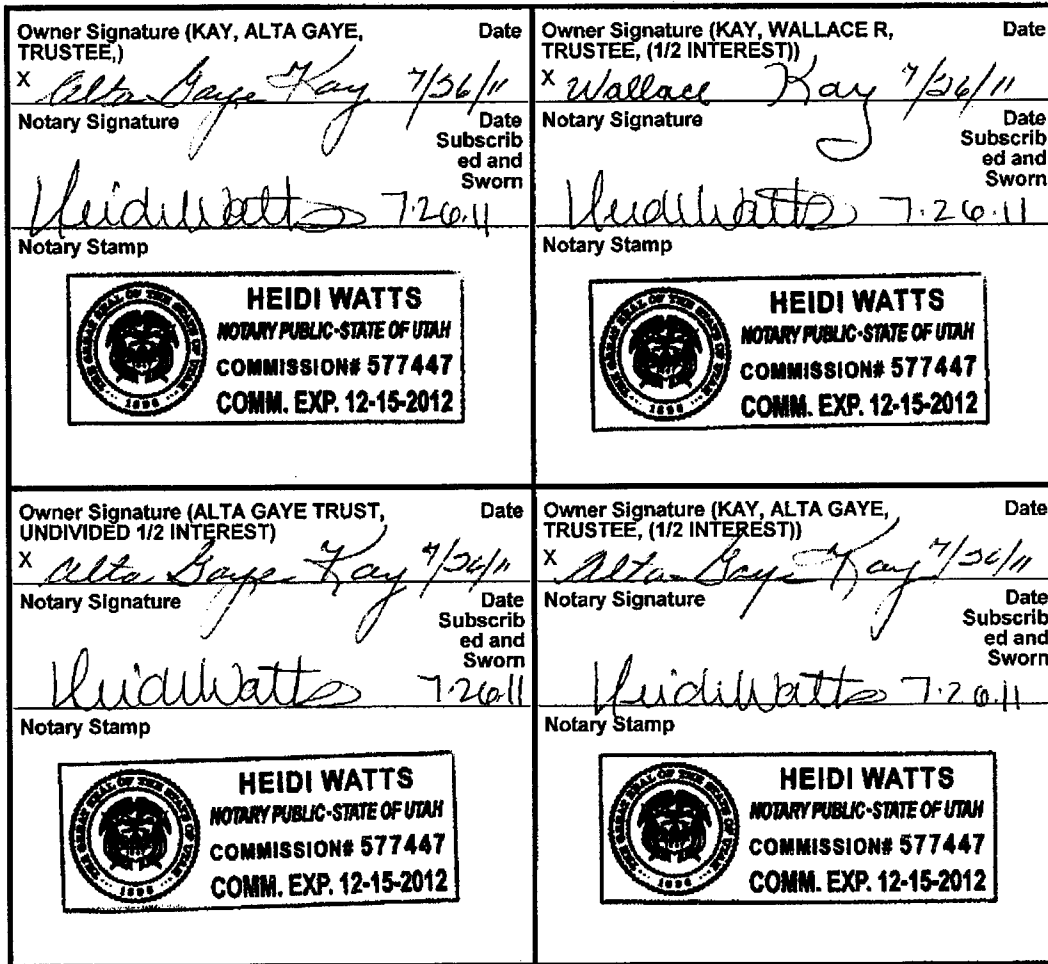 Owner Signature (KAY, ALTA GAYE, Date
TRUSTEE,)
X Alta Gaye Kay 7/26/11
Notary Signature Date
Subscrib
ed and
Sworn
Heidi Watts 7.26.11
Notary Stamp
THE GREAT SEAL OF THE STATE OF UTAH
1896
HEIDI WATTS
NOTARY PUBLIC-STATE OF UTAH
COMMISSION# 577447
COMM. EXP. 12-15-2012
Owner Signature (KAY, WALLACE R, Date
TRUSTEE, (1/2 INTEREST))
X Wallace Kay 7/26/11
Notary Signature Date
Subscrib
ed and
Sworn
Heidi Watts 7.26.11
Notary Stamp
THE GREAT SEAL OF THE STATE OF UTAH
1896
HEIDI WATTS
NOTARY PUBLIC-STATE OF UTAH
COMMISSION# 577447
COMM. EXP. 12-15-2012
Owner Signature (ALTA GAYE TRUST, Date
UNDIVIDED 1/2 INTEREST)
X Alta Gaye Kay 7/26/11
Notary Signature Date
Subscrib
ed and
Sworn
Heidi Watts 7.26.11
Notary Stamp
THE GREAT SEAL OF THE STATE OF UTAH
1896
HEIDI WATTS
NOTARY PUBLIC-STATE OF UTAH
COMMISSION# 577447
COMM. EXP. 12-15-2012
Owner Signature (KAY, ALTA GAYE, Date
TRUSTEE, (1/2 INTEREST))
X Alta Gaye Kay 7/26/11
Notary Signature Date
Subscrib
ed and
Sworn
Heidi Watts 7.26.11
Notary Stamp
THE GREAT SEAL OF THE STATE OF UTAH
1896
HEIDI WATTS
NOTARY PUBLIC-STATE OF UTAH
COMMISSION# 577447
COMM. EXP. 12-15-2012